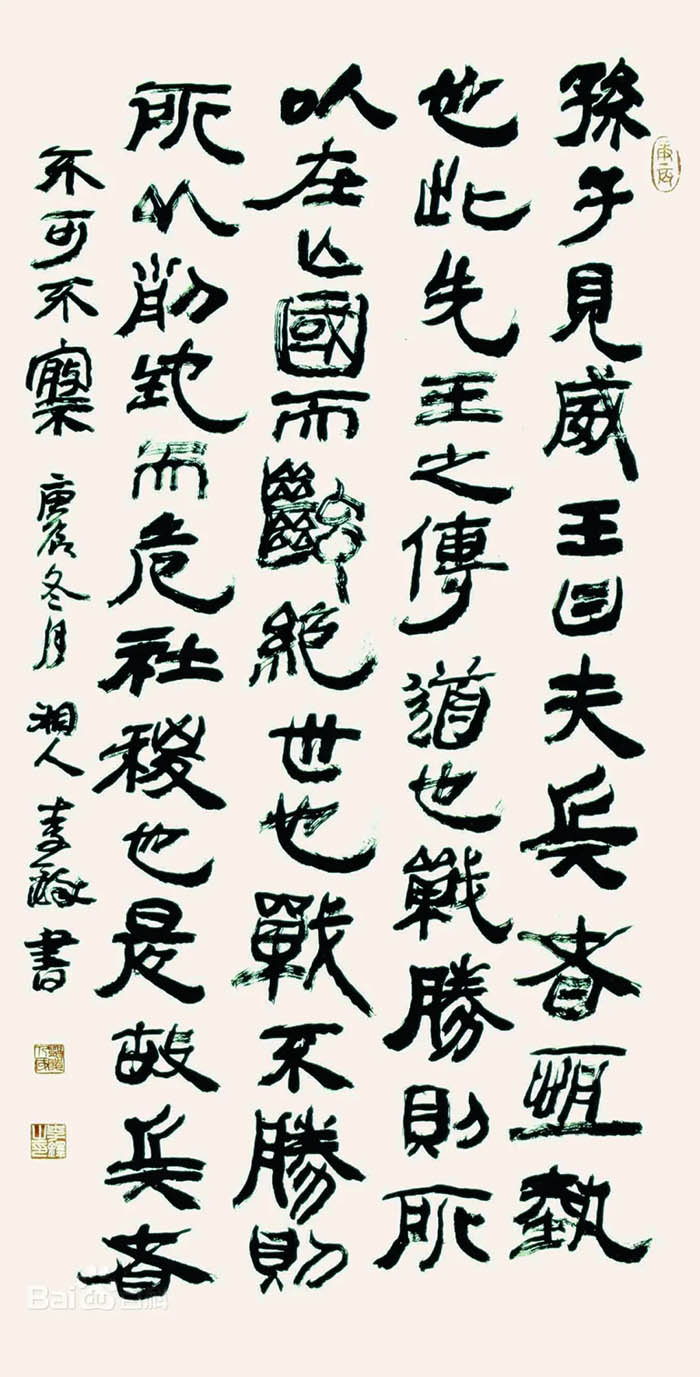 孫子見威王曰夫兵者恆埶
也此先王之傳道也戰勝則所
以在亡國而繼絕世也戰不勝則
所以削地而危社稷也是故兵者
不可不察 庚辰冬月 湘人李鐸書
Bai 百科